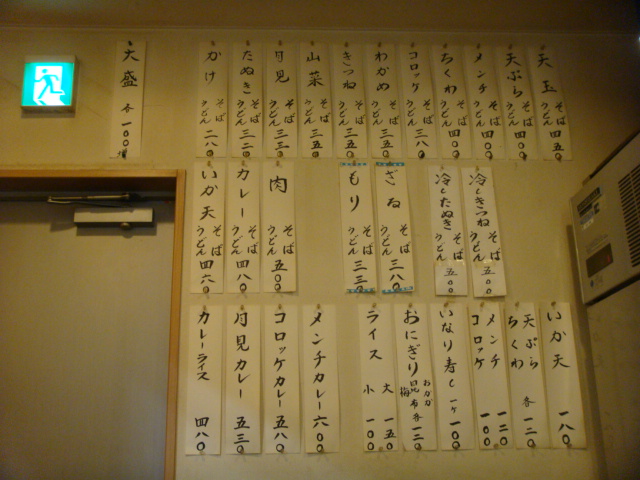 天玉 そば うどん 四五〇
天ぷら そば うどん 四〇〇
メンチ そば うどん 四〇〇
ちくわ そば うどん 四〇〇
コロッケ そば うどん 三八〇
わかめ そば うどん 三五〇
きつね そば うどん 三五〇
山菜 そば うどん 三五〇
月見 そば うどん 三三〇
たぬき そば うどん 三二〇
かけ そば うどん 二八〇
大盛 各一〇〇増
冷しきつね そば うどん 五〇〇
冷したぬき そば うどん 五〇〇
ざる そば うどん 三八〇
もり そば うどん 三三〇
肉 そば うどん 五〇〇
カレー そば うどん 四八〇
いか天 そば うどん 四六〇
いか天 一八〇
天ぷら ちくわ 各一三〇
メンチ 一二〇
コロッケ 一〇〇
いなり寿し 一ケ 一〇〇
おにぎり おかか 昆布 梅 各一三〇
ライス 大 一五〇 小 一〇〇
メンチカレー 六〇〇
コロッケカレー 五八〇
月見カレー 五三〇
カレーライス 四八〇